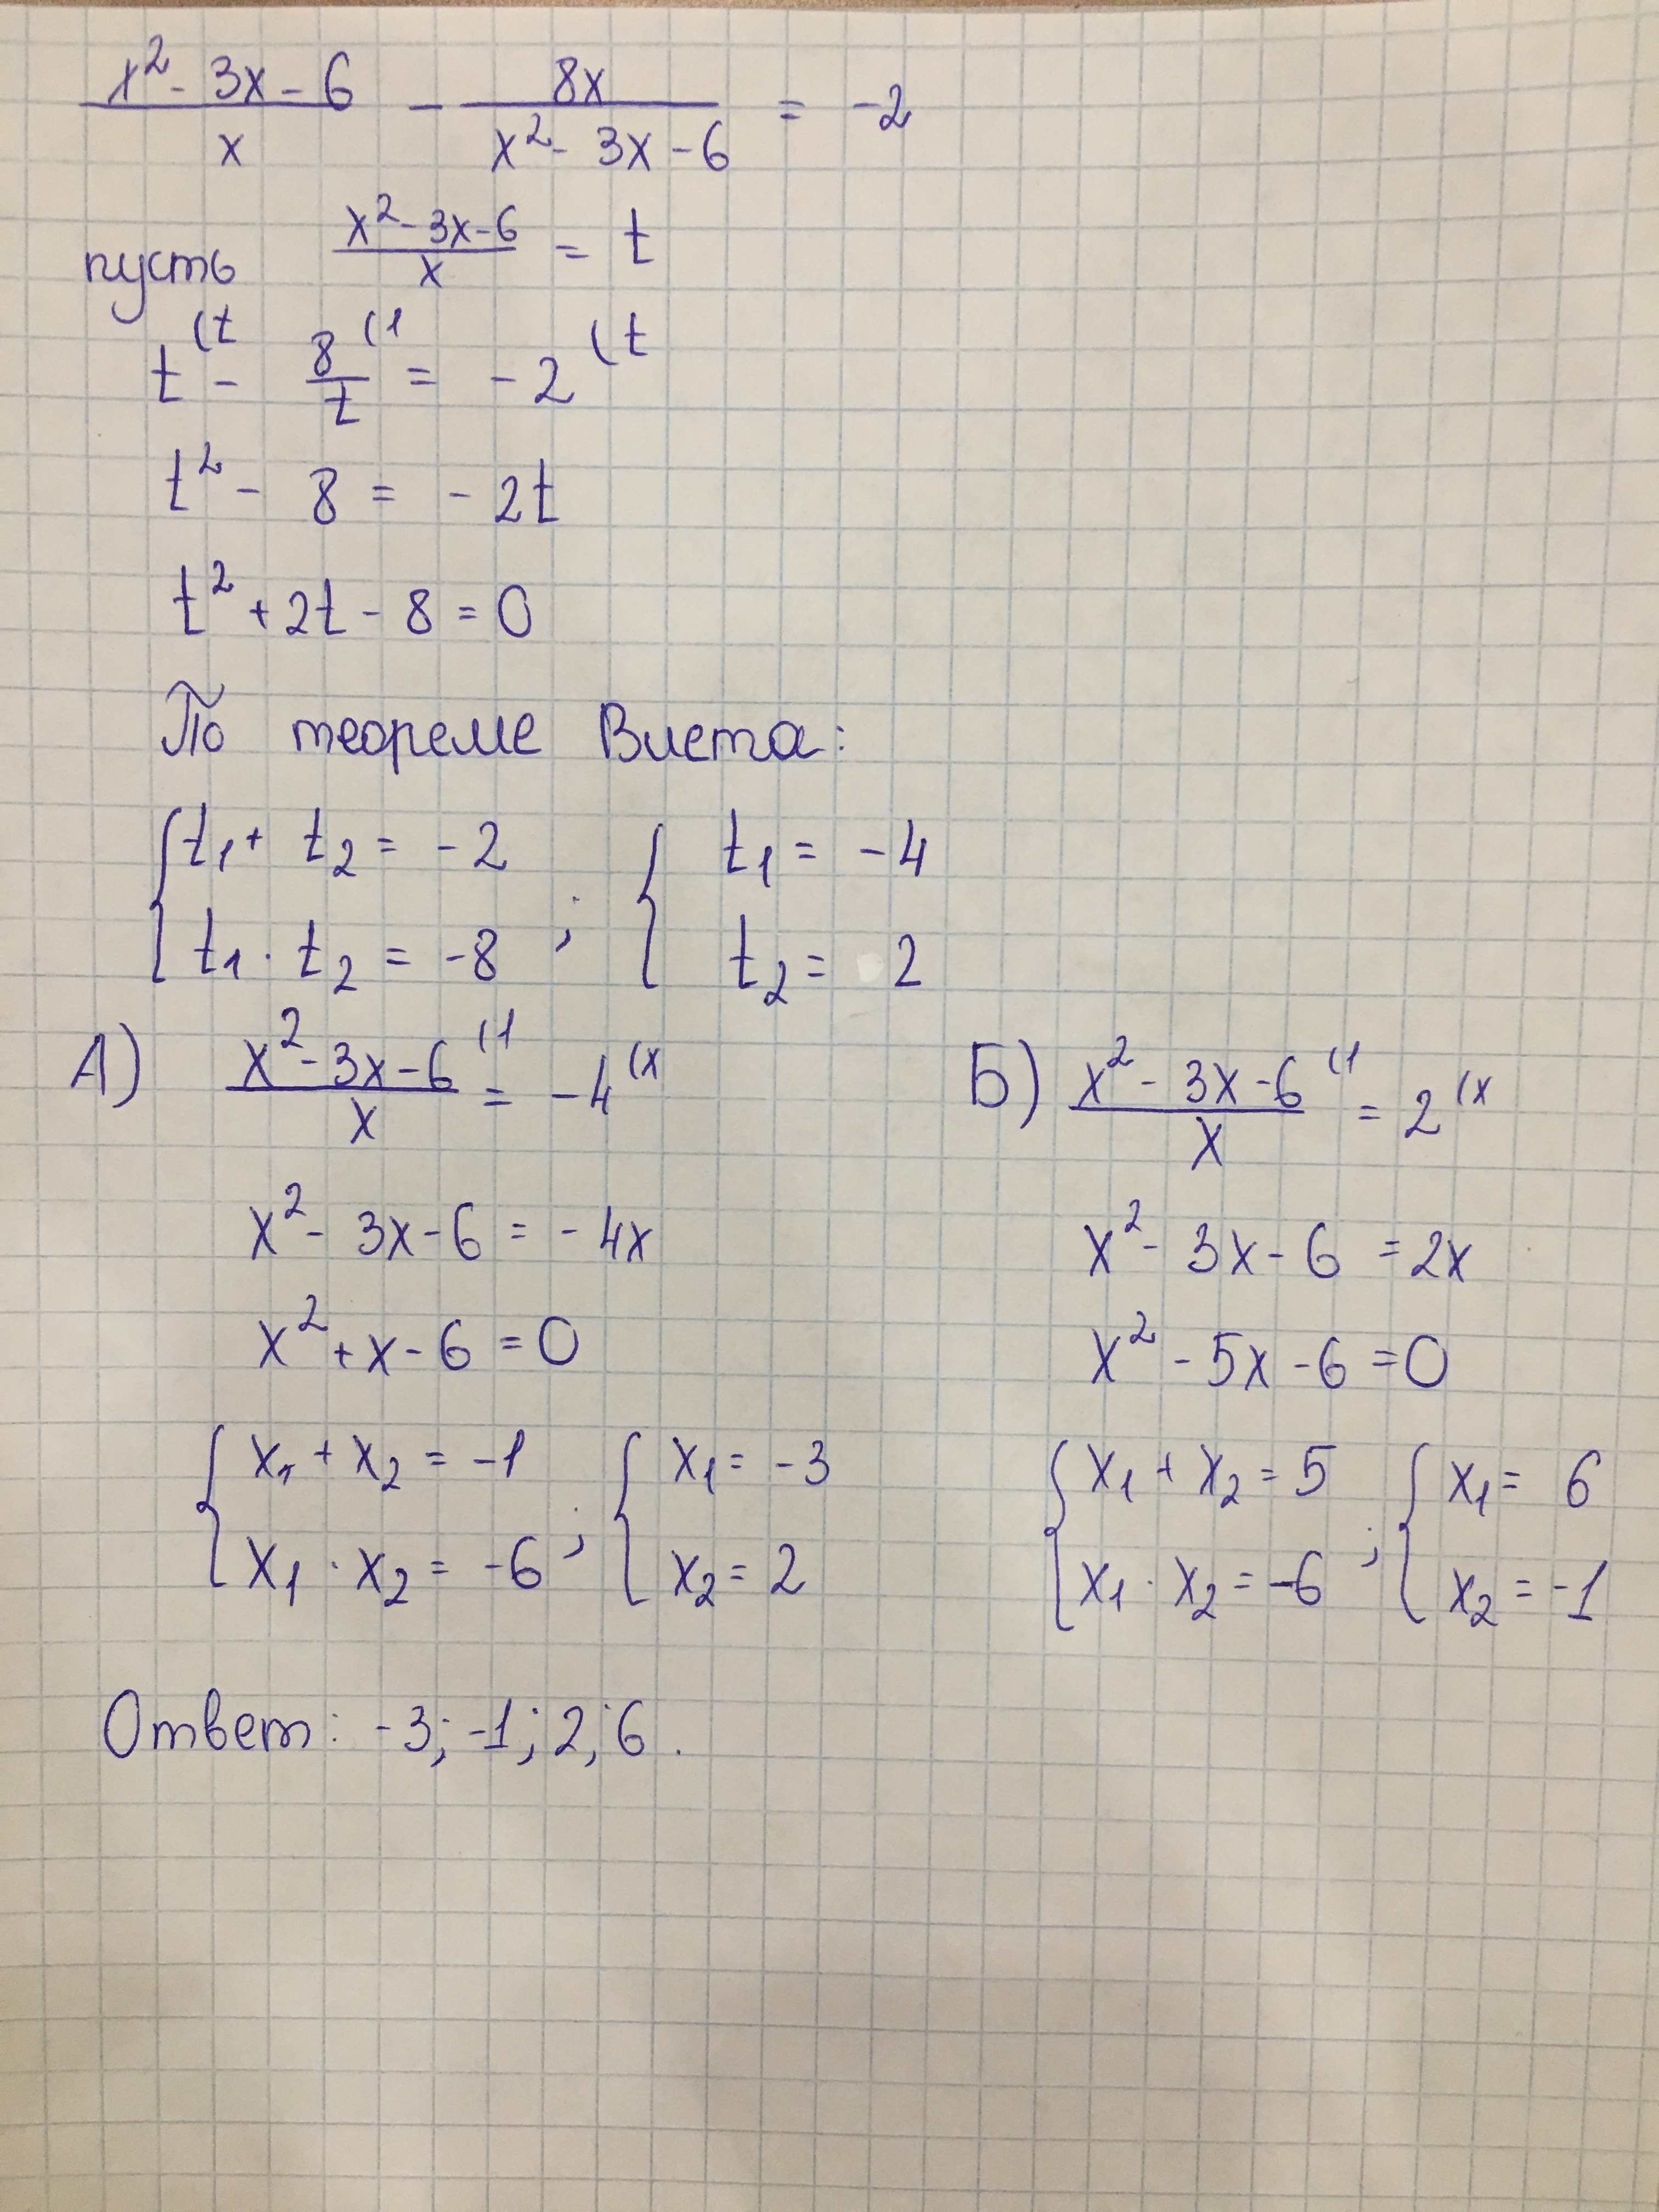 (x² - 3x - 6)/x - 8x/(x² - 3x - 6) = -2
пусть (x² - 3x - 6)/x = t
t⁽ᵗ - 8/t⁽¹ = -2⁽ᵗ
t² - 8 = -2t
t² + 2t - 8 = 0
По теореме Виета:
{ t₁ + t₂ = -2 { t₁ = -4
{ t₁ · t₂ = -8 ; { t₂ = 2
А) (x² - 3x - 6)/x ⁽¹ = -4⁽ˣ
x² - 3x - 6 = -4x
x² + x - 6 = 0
{ x₁ + x₂ = -1 { x₁ = -3
{ x₁ · x₂ = -6 ; { x₂ = 2
Б) (x² - 3x - 6)/x ⁽¹ = 2⁽ˣ
x² - 3x - 6 = 2x
x² - 5x - 6 = 0
{ x₁ + x₂ = 5 { x₁ = 6
{ x₁ · x₂ = -6 ; { x₂ = -1
Ответ: -3; -1; 2; 6.